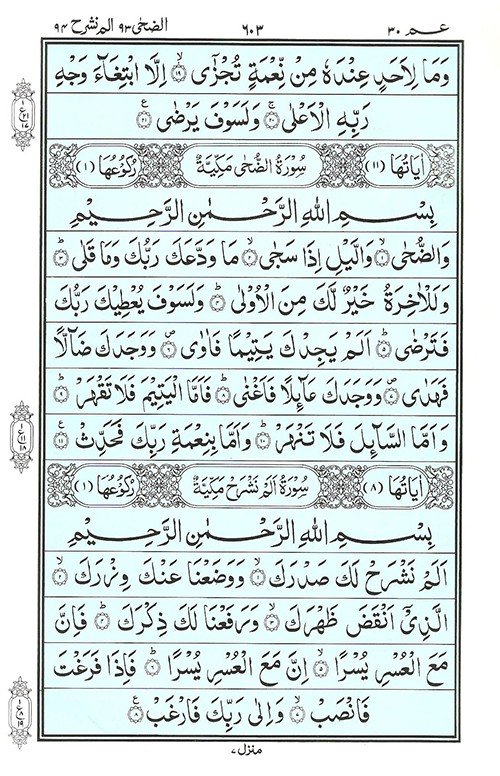 عـم ٣٠ ٦٠٣ الضحٰى ٩٣ الم نشرح ٩٤
وَمَا لِاَحَدٍ عِنْدَهٗ مِنْ نِّعْمَةٍ تُجْزٰٓى ۙ‏﴿۱۹﴾ اِلَّا ابْتِغَآءَ وَجْهِ
رَبِّهِ الْاَعْلٰى‌ ۚ‏﴿۲۰﴾ وَلَسَوْفَ يَرْضٰى ‏﴿۲۱﴾ ع
ع ١ ٢١ ١٧
اٰيَاتُهَا (١١) سُوْرَةُ الضُّحٰى مَكِّيَّةٌ رُكُوْعُهَا (١)
بِسْمِ اللهِ الرَّحْمٰنِ الرَّحِيْمِ
وَالضُّحٰى ۙ‏﴿۱﴾ وَالَّيْلِ اِذَا سَجٰى ۙ‏﴿۲﴾ مَا وَدَّعَكَ رَبُّكَ وَمَا قَلٰى ؕ‏﴿۳﴾
وَلَلْاٰخِرَةُ خَيْرٌ لَّكَ مِنَ الْاُوْلٰى ؕ‏﴿۴﴾ وَلَسَوْفَ يُعْطِيْكَ رَبُّكَ
فَتَرْضٰى ؕ‏﴿۵﴾ اَلَمْ يَجِدْكَ يَتِيْمًا فَاٰوٰى ۪‏﴿۶﴾ وَوَجَدَكَ ضَآلًّا
فَهَدٰى ۪‏﴿۷﴾ وَوَجَدَكَ عَآئِلًا فَاَغْنٰى ؕ‏﴿۸﴾ فَاَمَّا الْيَتِيْمَ فَلَا تَقْهَرْ ؕ‏﴿۹﴾
وَاَمَّا السَّآئِلَ فَلَا تَنْهَرْ ؕ‏﴿۱۰﴾ وَاَمَّا بِنِعْمَةِ رَبِّكَ فَحَدِّثْ ‏﴿۱۱﴾ ع
ع ١ ١١ ١٨
اٰيَاتُهَا (٨) سُوْرَةُ اَلَمْ نَشْرَحْ مَكِّيَّةٌ رُكُوْعُهَا (١)
بِسْمِ اللهِ الرَّحْمٰنِ الرَّحِيْمِ
اَلَمْ نَشْرَحْ لَكَ صَدْرَكَ ۙ‏﴿۱﴾ وَوَضَعْنَا عَنْكَ وِزْرَكَ ۙ‏﴿۲﴾
الَّذِىْٓ اَنْقَضَ ظَهْرَكَ ۙ‏﴿۳﴾ وَرَفَعْنَا لَكَ ذِكْرَكَ ؕ‏﴿۴﴾ فَاِنَّ
مَعَ الْعُسْرِ يُسْرًا ۙ‏﴿۵﴾ اِنَّ مَعَ الْعُسْرِ يُسْرًا ؕ‏﴿۶﴾ فَاِذَا فَرَغْتَ
فَانْصَبْ ۙ‏﴿۷﴾ وَاِلٰى رَبِّكَ فَارْغَبْ ‏﴿۸﴾ ع
ع ١ ٨ ١٩
منزل ٧